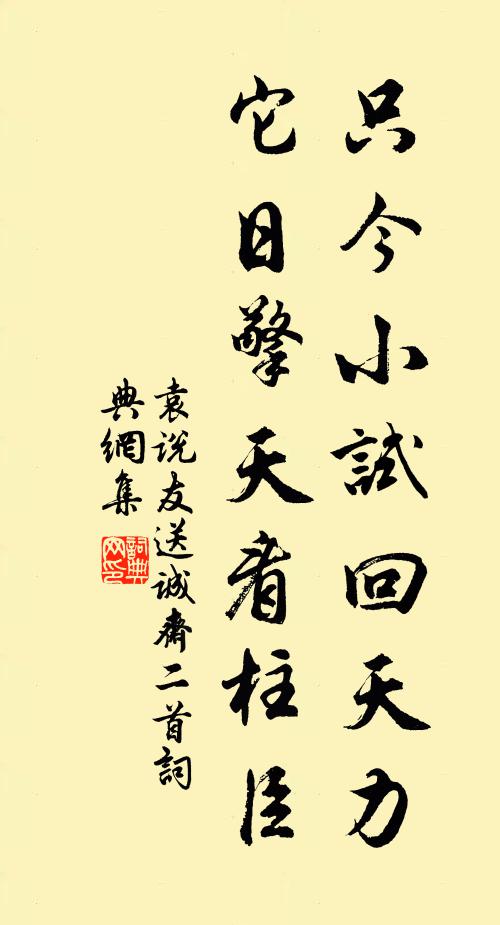 只今小試回天力
它日擎天看柱臣
袁说友送诚齋二首詞
典網集
詞典網印